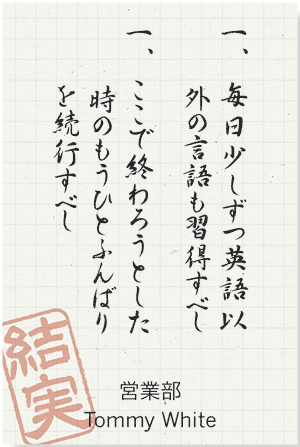 一、毎日少しずつ英語以
外の言語も習得すべし
一、ここで終わろうとした
時のもうひとふんばり
を続行すべし
結実
営業部
Tommy White